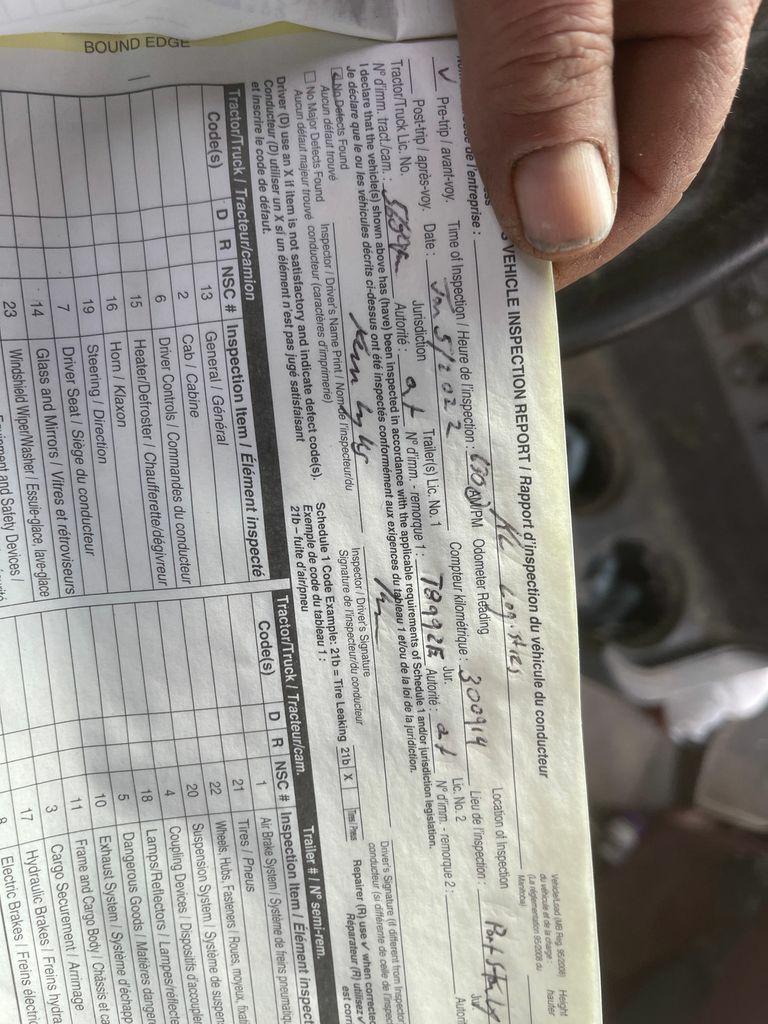 BOUND EDGE
VEHICLE INSPECTION REPORT / Rapport d'inspection du véhicule du conducteur
de l'entreprise : Logistics
Vehicle/Load (MB Reg. 95/2008) Height
du véhicule et de la charge : hauteur
(La réglementation 95/2008 du
Manitoba)
✓ Pre-trip / avant-voy. Time of Inspection / Heure de l'inspection : AM/PM Odometer Reading Location of Inspection
Post-trip / après-voy. Date : Jan 5/2022 Compteur kilométrique : 300914 Lieu de l'inspection : Port
Tractor/Truck Lic. No. Jurisdiction Trailer(s) Lic. No. 1 Jur. Lic. No. 2 Jur
N° d'imm. tract./cam. : Autorité : N° d'imm. - remorque 1 : Autorité : N° d'imm. - remorque 2 :
I declare that the vehicle(s) shown above has (have) been inspected in accordance with the applicable requirements of Schedule 1 and/or jurisdiction legislation.
Je déclare que le ou les véhicules décrits ci-dessus ont été inspectés conformément aux exigences du tableau 1 et/ou de la loi de la juridiction.
No Defects Found
Aucun défaut trouvé
No Major Defects Found
Aucun défaut majeur trouvé
Inspector / Driver's Name Print / Nom de l'inspecteur/du
conducteur (caractères d'imprimerie)
Inspector / Driver's Signature
Signature de l'inspecteur/du conducteur
Driver's Signature (if different from Inspector
conducteur (si différente de celle de l'inspec
Driver (D) use an X if item is not satisfactory and indicate defect code(s).
Conducteur (D) utiliser un X si un élément n'est pas jugé satisfaisant
et inscrire le code de défaut.
Schedule 1 Code Example: 21b = Tire Leaking 21b X
Exemple de code du tableau 1 :
21b – fuite d'air/pneu
Repairer (R) use ✓ when corrected
Réparateur (R) utilisez ✓
est corr
Tractor/Truck / Tracteur/camion
Code(s) D R NSC # Inspection Item / Élément inspecté
13 General / Général
2 Cab / Cabine
6 Driver Controls / Commandes du conducteur
15 Heater/Defroster / Chaufferette/dégivreur
16 Horn / Klaxon
19 Steering / Direction
7 Driver Seat / Siège du conducteur
14 Glass and Mirrors / Vitres et rétroviseurs
23 Windshield Wiper/Washer / Essuie-glace, lave-glace
Equipment and Safety Devices /
Tractor/Truck / Tracteur/cam. Trailer # / N° semi-rem.
Code(s) D R NSC # Inspection Item / Élément inspect
1 Air Brake System / Système de freins pneumatiq
21 Tires / Pneus
22 Wheels, Hubs, Fasteners / Roues, moyeux, fixati
20 Suspension System / Système de suspen
4 Coupling Devices / Dispositifs d'accouple
18 Lamps/Reflectors / Lampes/réflecte
5 Dangerous Goods / Matières danger
10 Exhaust System / Système d'échapp
11 Frame and Cargo Body / Châssis et ca
3 Cargo Securement / Arrimage
17 Hydraulic Brakes / Freins hydra
8 Electric Brakes / Freins électric